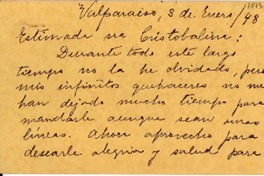 Valparaíso, 3 de Enero/48
Estimada sra Cristobalina:
Durante todo este largo
tiempo no la he olvidado, pero
mis infinitos quehaceres no me
han dejado mucho tiempo para
mandarle aunque sean unas
líneas. Ahora aprovecho para
desearle alegría y salud para